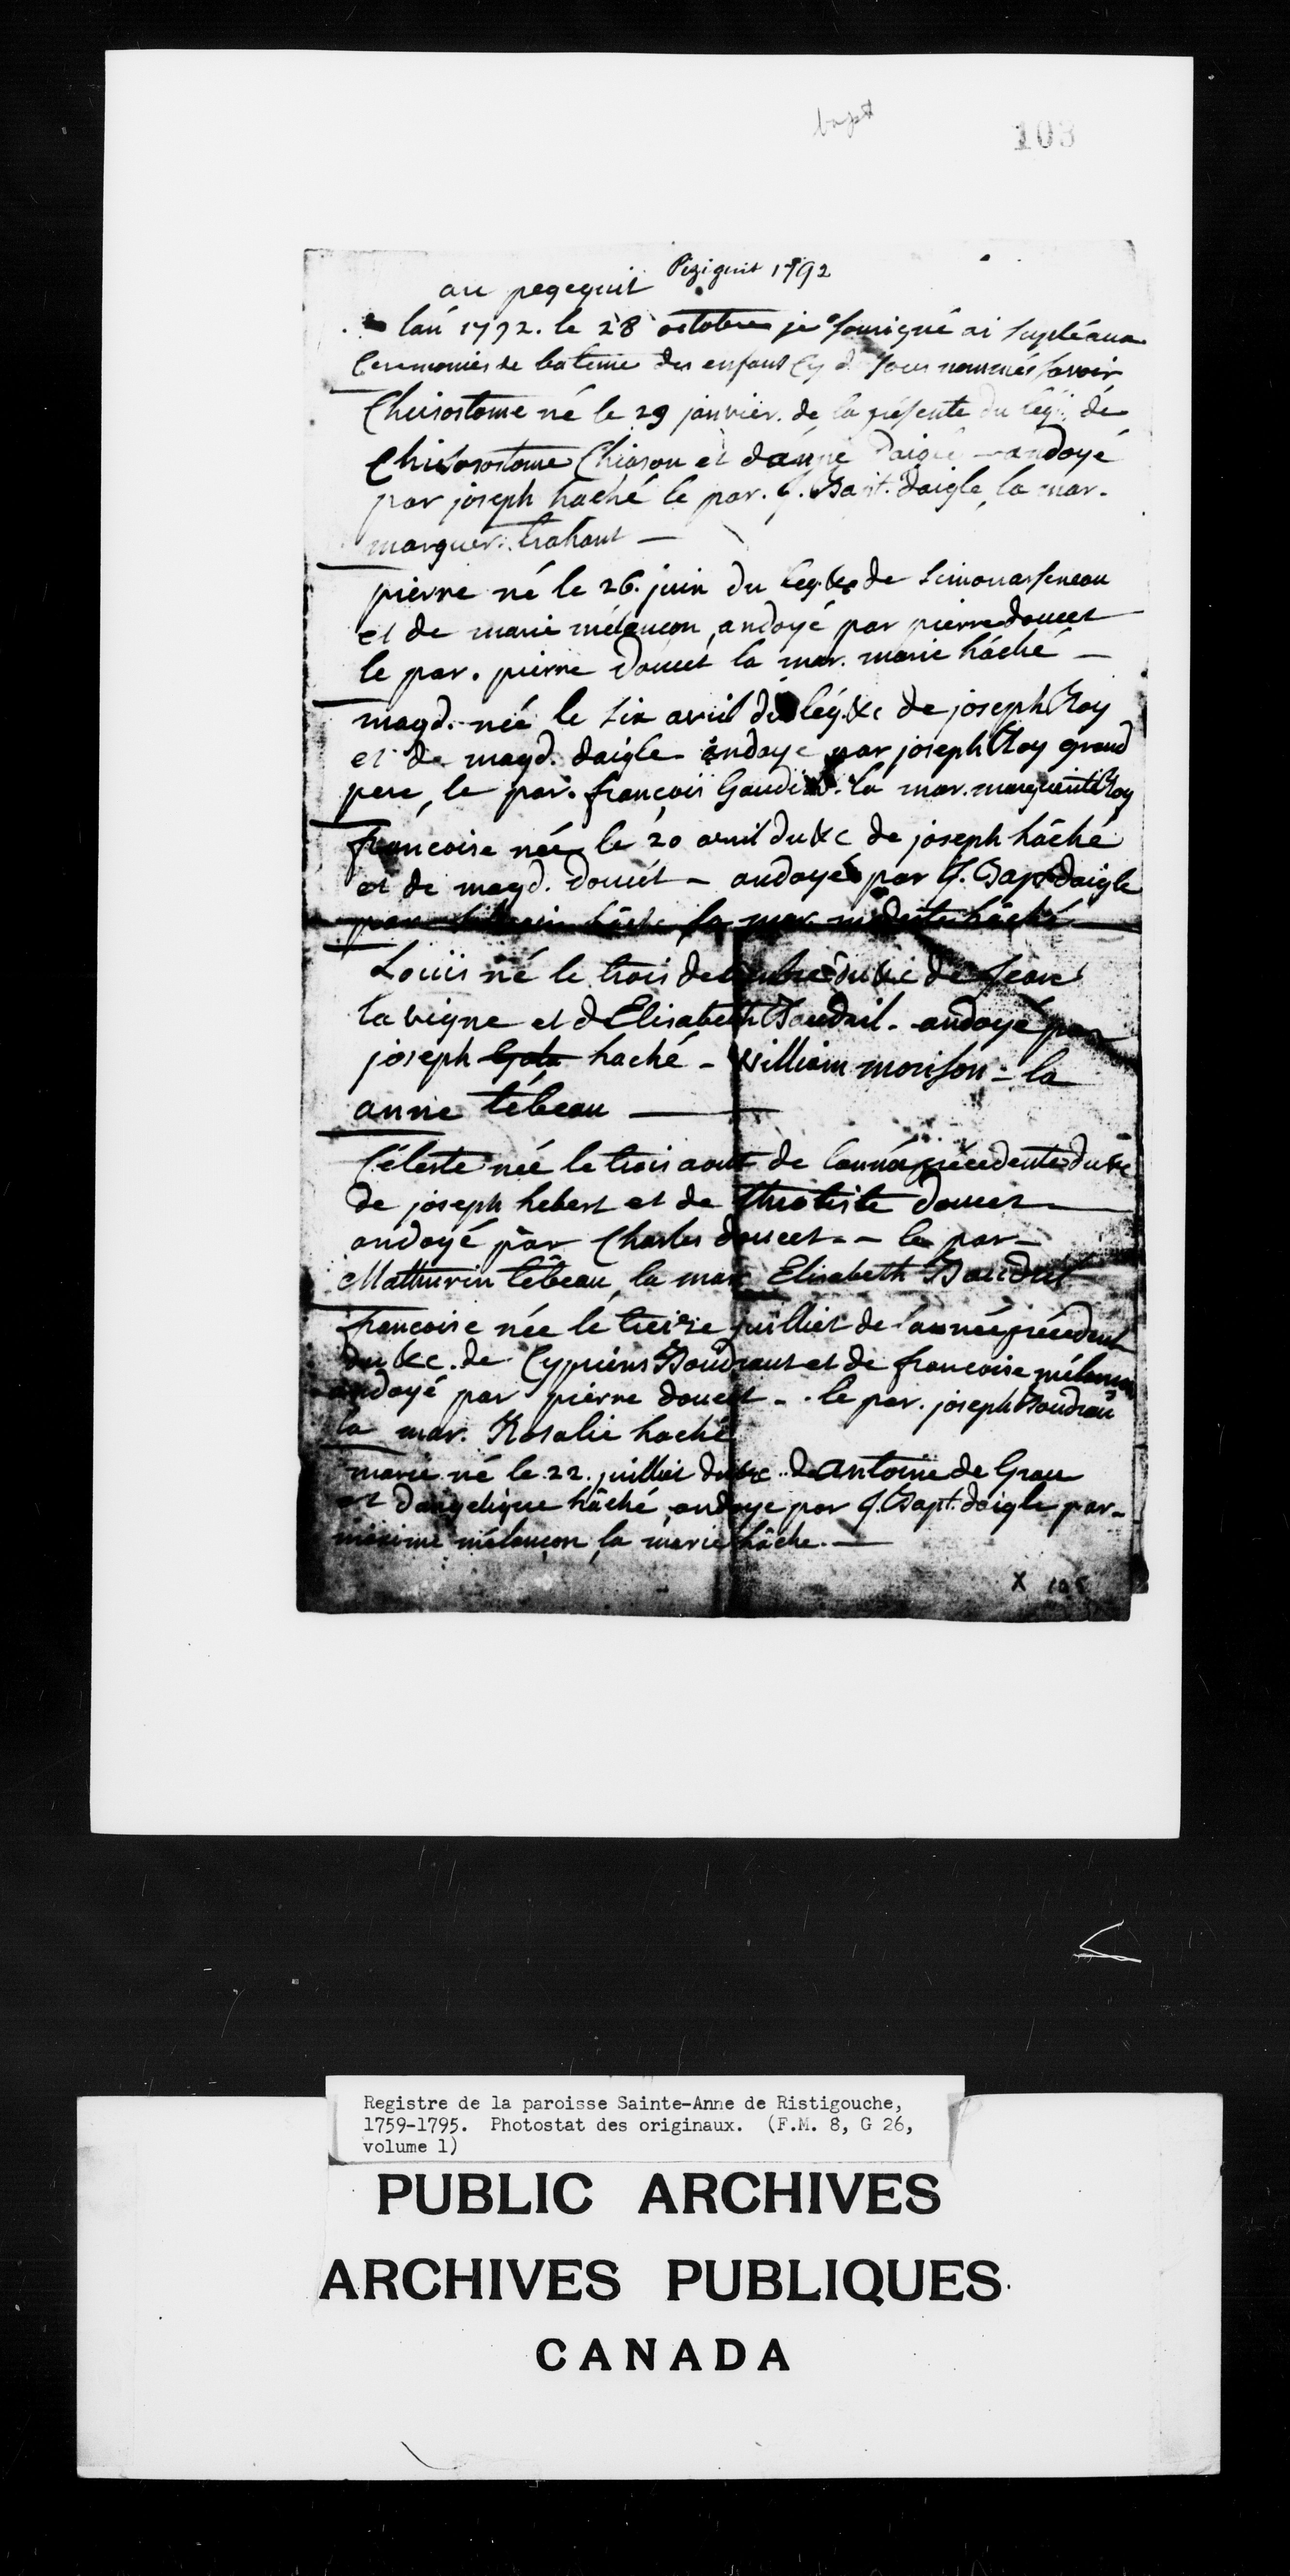 bapt
103
Pegiguit 1792
au pegeguit
lan 1792. le 28 octobre je sousigné ai supléaux
Ceremonies de bateme des enfant Cy de sous nommés savoir
Chrisostome né le 29 janvier. de la présente du lég. de
Chrisosostome Chiason et danne Daigle - andoyé
par joseph haché le par. J. Bapt. daigle, la mar.
marguer. trahant —
pierre né le 26. juin du leg. &c de Simonarseneau
et de marie mélençon, andoyé par pierre doucet
le par. pierre doucet la mar. marie hâché —
magd. née le six avril du lég. &c de joseph Roy
et de magd. daigle andoye par joseph Roy grand
pere, le par. françois Gaudin. la mar. margueritte Roy
francoise née le 20 avril du &c de joseph hâché
et de magd. doucet - andoyé par J. Bapt daigle
par hâché la mar. modeste hâché
Louis né le trois de du &c de Jean
la vigne et d Elisabeth Boudrit - andoyé par
joseph haché - William morison - la
anne têbeau —
Céleste née le trois aout de lannée précedente du &c
de joseph hebert et de théotiste doucet —
ondoyé par Charles doucet - - le par -
Mathurin têbeau, la mar. Elisabeth Boudrit
francoise née le treize juilliet de l'année précedent
du &c. de Cyprien Boudraut et de francoise mélançon
andoyé par pierre doucet - . le par. joseph Boudrau
la mar. Rosalie haché
marie né le 22. juilliet du &c. de Antoine de Grace
et dangelique hâché, andoye par J. Bapt. daigle par -
maxime mélançon, la marie hâche. —
X 105
Registre de la paroisse Sainte-Anne de Ristigouche,
1759-1795. Photostat des originaux. (F.M. 8, G 26,
volume 1)
PUBLIC ARCHIVES
ARCHIVES PUBLIQUES
CANADA